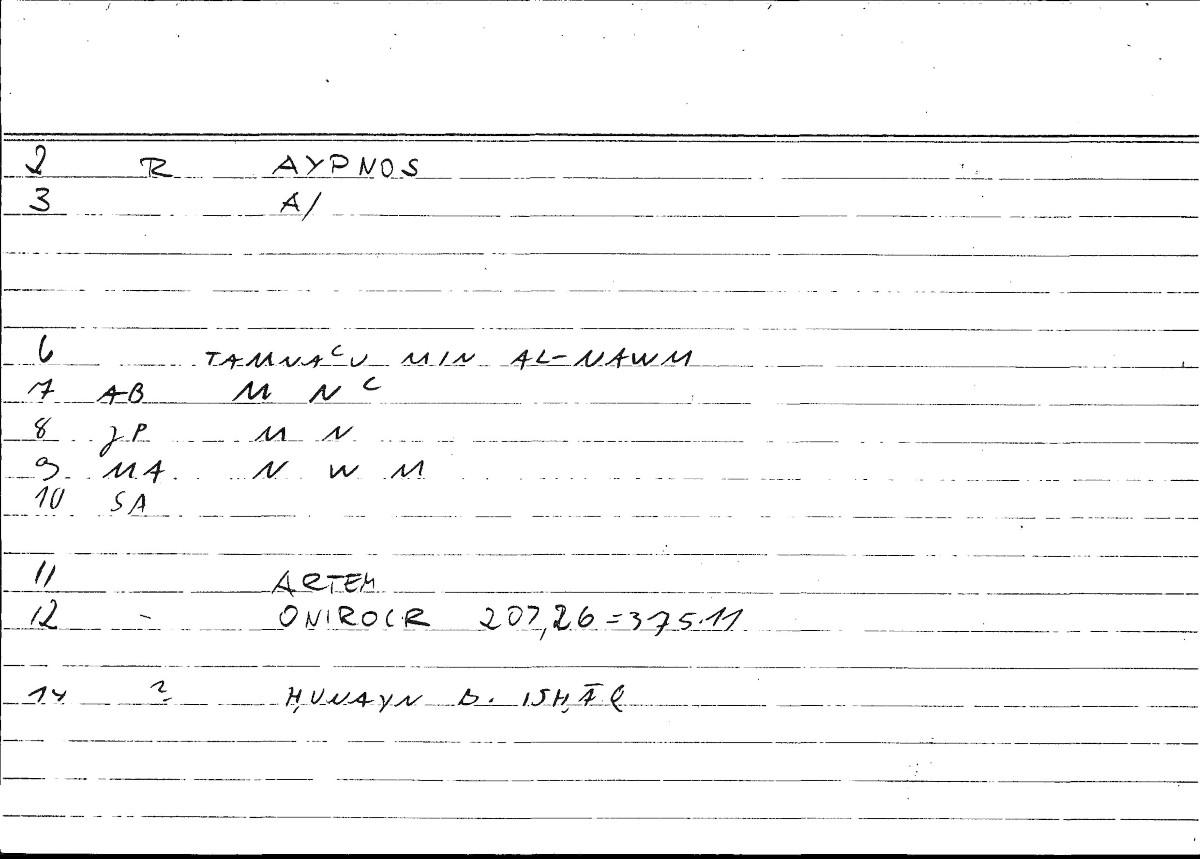 2 R AYPNOS
3 A/
6 TAMNAᶜU MIN AL-NAWM
7 AB M N ᶜ
8 JP M N
9 MA N W M
10 SA
11 ARTEM
12 - ONIROCR 207,26=375.11
14 2 ḤUNAYN B. ISḤĀQ